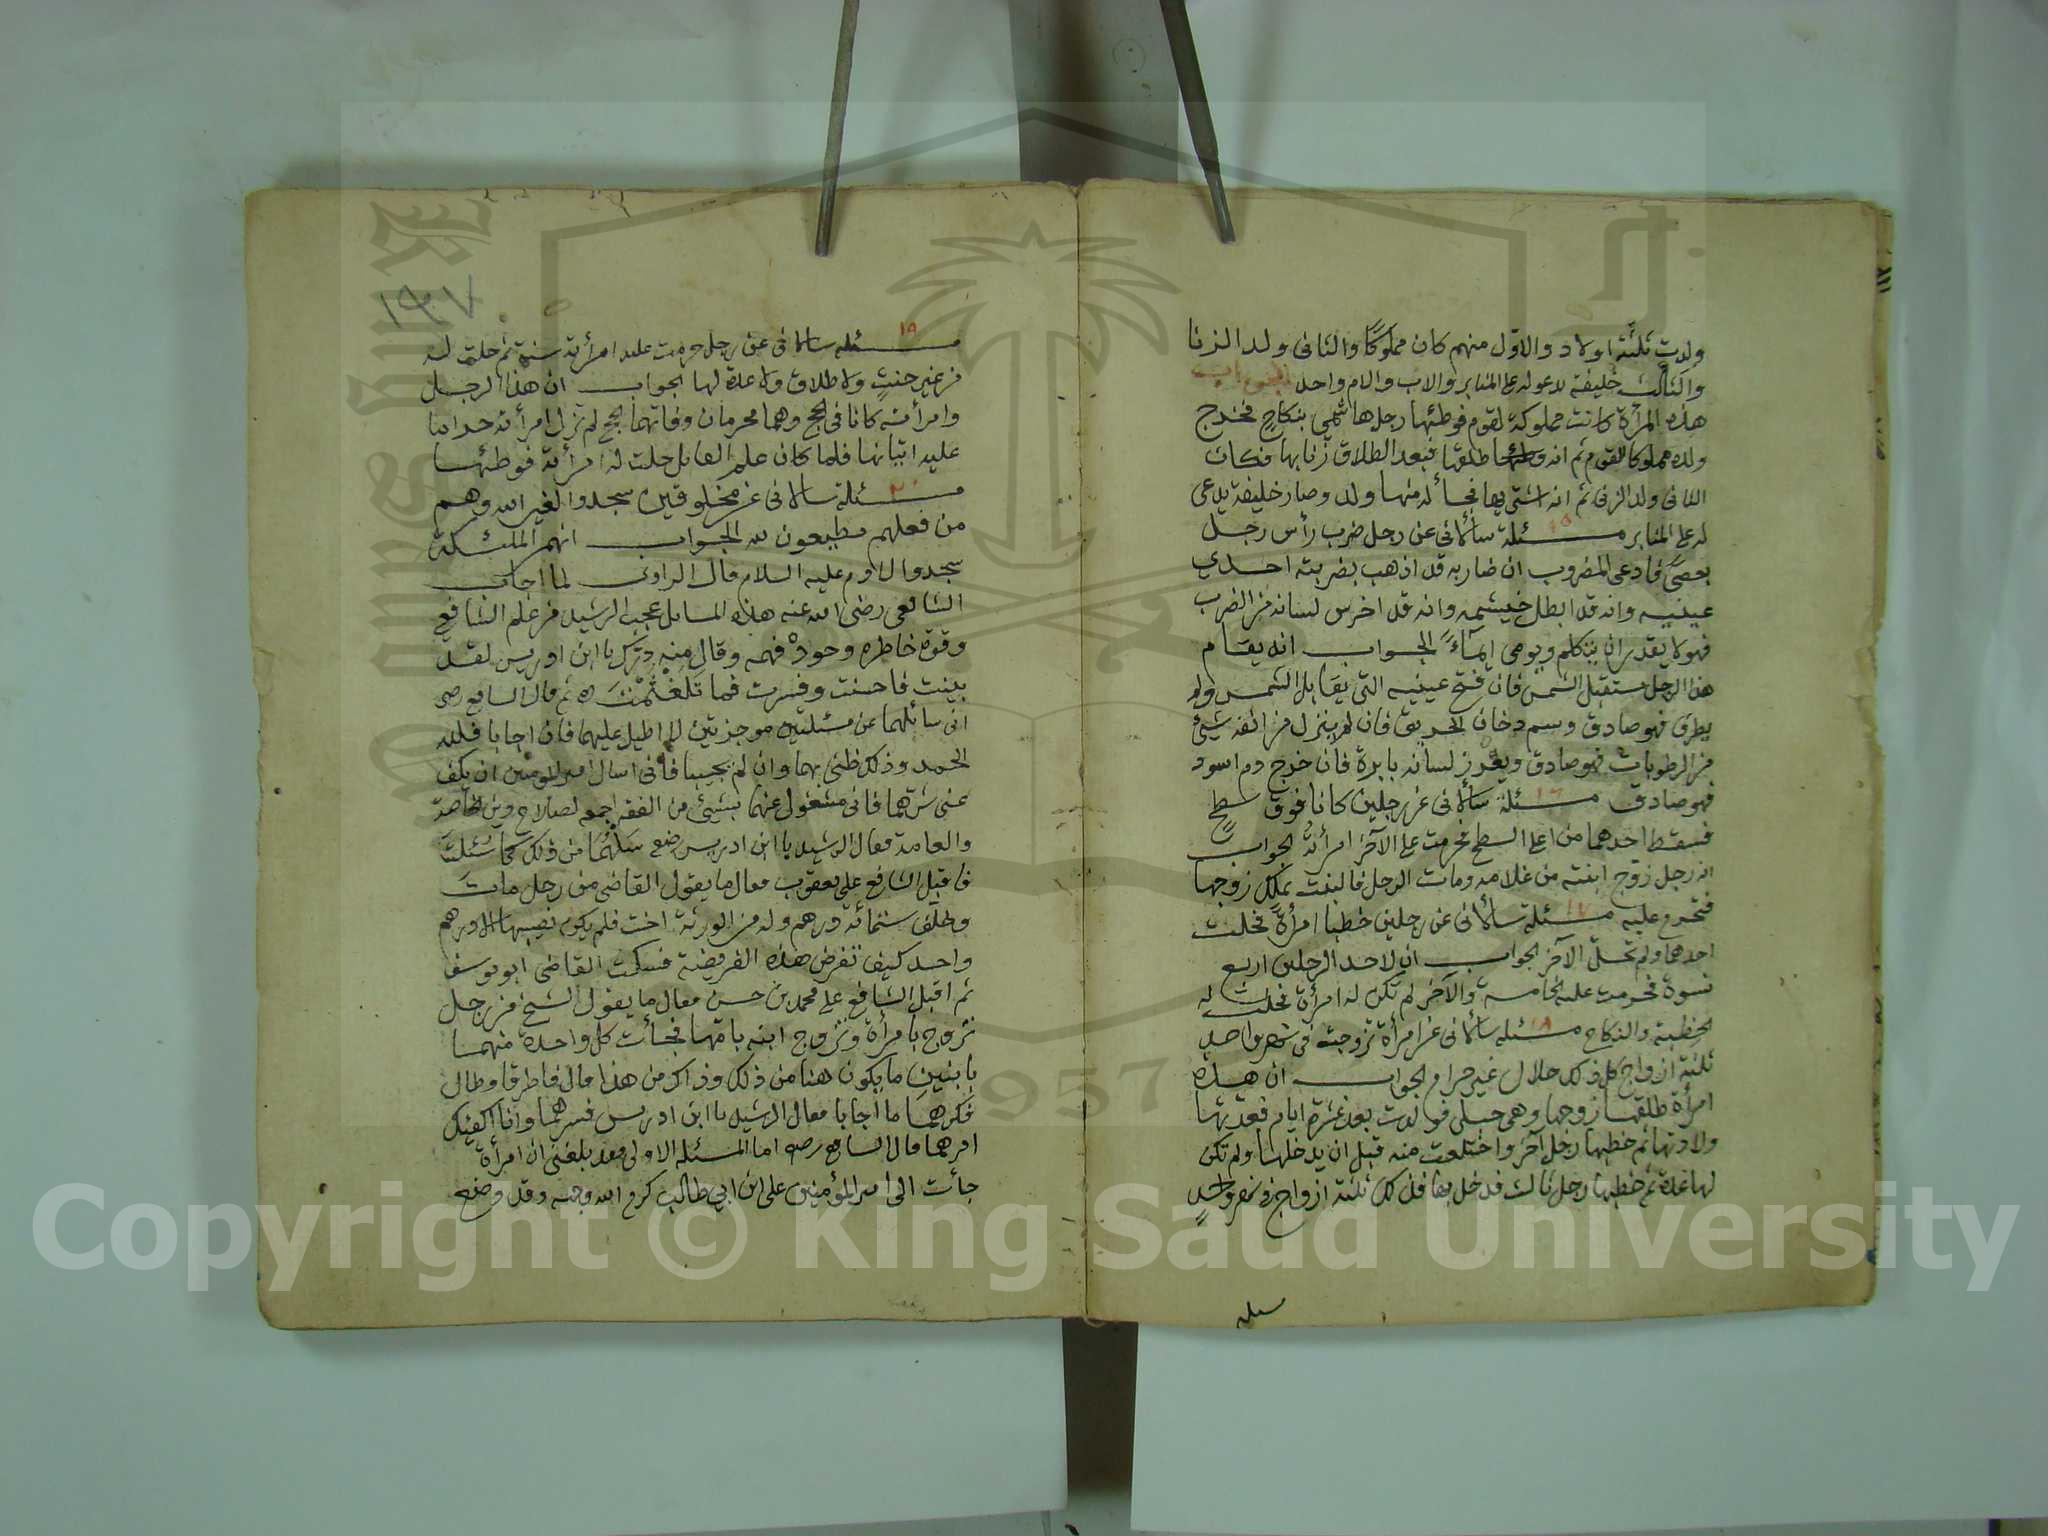 ولدت ثلثة اولاد والاول منهم كان مملوكًا والثانى ولد الزنا
والثالث خليفة يدعو له على المنابر والاب والام واحد الجواب
هذه المرأة كانت مملوكة لقوم فوطئها رجلها شمى بنكاحٍ فخرج
ولده مملوكا للقوم ثم انه طلقها فبعد الطلاق زنا بها فكان
الثانى ولد الزنى ثم انه اشتريها فجأ له منها ولد وصار خليفة يدعى
له على المنابر مسئلة ١٥ سألانى عن رجل ضرب رأس رجل
بعصىً فادعى المضروب ان ضاربه قد اذهب بضربته احدي
عينيه وانه قد ابطل خيشمه وانه قد اخرس لسانه من الضرب
فهو لا يقدر ان يتكلم ويومى ايمآءً الجواب انه يقام
هذا الرجل مستقبل الشمس فان فتح عينيه التى يقابل الشمس ولم
يطرق فهو صادق وسم دخان الحريق فان لم ينزل من انفه شيئ
من الرطوبات فهو صادق ويغرز لسانه بابرة فان خرج دم اسود
فهو صادق مسئلة ١٦ سألانى عن رجلين كانا فوق سطحٍ
فسقط احدهما من اعلى السطح فحرمت على الآخر امرأتهُ الجواب
انه رجل زوج ابنته من غلامه ومات الرجل فالبنت تملك زوجها
فتحرم عليه مسئلة ١٧ سألانى عن رجلين خطبا امرأةً فحلت
احدهما ولم تحل الآخر الجواب ان لاحد الرجلين اربع
نسوة فحرمت عليه الخامسة والآخر لم تكن له امرأة فحلت له
الخطبة والنكاح مسئلة ١٨ سألانى عن امرأة تزوجت فى شهر واحد
ثلثة ازواج كل ذلك حلال غير حرام الجواب ان هذه
امرأة طلقها زوجها وهى حبلى فولدت بعد عشرة ايام فعدتها
ولادتها ثم خطبها رجل آخر واختلعت منه قبل ان يدخلها ولم تكن
لها عدة ثم خطبها رجل ثالث فدخل بها فذلك ثلثة ازواج فى شهر واحدٍ
مسئله
١٩٧
مسئلة ١٩ سألانى عن رجل حرمت عليه امرأته سنة ثم حلت له
من غير حنثٍ ولا طلاق ولا عدة لها الجواب ان هذا الرجل
وامرأته كانا فى الحج وهما محرمان وفاتهما الحج لم تزل امرأته حراما
عليه اتيانها فلما كان علم القابل حلت له امرأته فوطئها
مسئلة ٢٠ سألانى عن مخلوقين سجدوا لغير الله وهم
من فعلهم مطيعون لله الجواب انهم الملئكة
سجدوا لادم عليه السلام قال الراوى لما اجاب
الشافعى رضى الله عنه هذه المسايل عجب الرشيد من علم الشافعي
وقوة خاطره وجودْ فهمه وقال منه درّك يا ابن ادريس لقد
بينت فاحسنت وفسرت فما تلعثمت ثم قال الشافع رضى
انى سائلهما عن مسئلتين موجزتين لا اطيل عليهما فان اجابا فلله
الحمد وذلك ظنى بهما وان لم يجيبا فانى اسال امير المؤمنين ان يكف
عنى شرهما فانى مشغول عنهما بشيئ من الفقه اجمعه لصلاح دين الخاصة
والعامة فقال الرشيد يا ابن ادريس رضع سلهُما من ذلك كما سُئلتَ
فاقبل الشافع على يعقوب فقال ما يقول القاضى من رجل ماتَ
وخلّف ستمائة درهم وله من الورثة اخت فلم يكون نصيبها الا درهم
واحد كيف تفرض هذه الفريضة فسكت القاضى ابو يوسف
ثم اقبل الشافع على محمد بن حسن فقال ما يقول الشيخ من رجل
تزوج بامرأة وتزوج ابنه بامّها فجأت كل واحدة منهما
بابنين ما يكون هذا من ذلك وذاك من هذا قال فاطرقا وطال
فكرهما ما اجابا فقال الرشيد يا ابن ادريس فسرهما وانا اكفيك
امرهما قال الشافع رضى اما المسئلة الاولى فقد بلغنى ان امرأة
جأت الى امير المؤمنين على ابن ابي طالب كرم الله وجهه وقد وضع
Copyright © King Saud University
1957